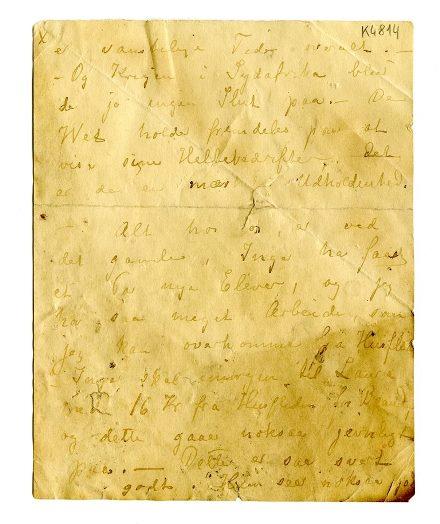 K4814
er vanskelige Tider overalt. —
— Og Krigen i Sydafrika blev
de jo ingen Slut paa. — De
Wet holde fremdeles paa at
vise sine Heltebedrifter. det
er da en Udholdenhed.
— Alt hos os er ved
det gamle, Inga ha faaet
et Par nye Elever, og jeg
ha saa meget Arbeide, som
jeg kan overkomme fra Husflid
— Inga skal imorgen til
med 16 Kr fra Husfliden
og dette gaar noksaa jevnligt
paa. — Dette er saa svært
godt. seer noksaa